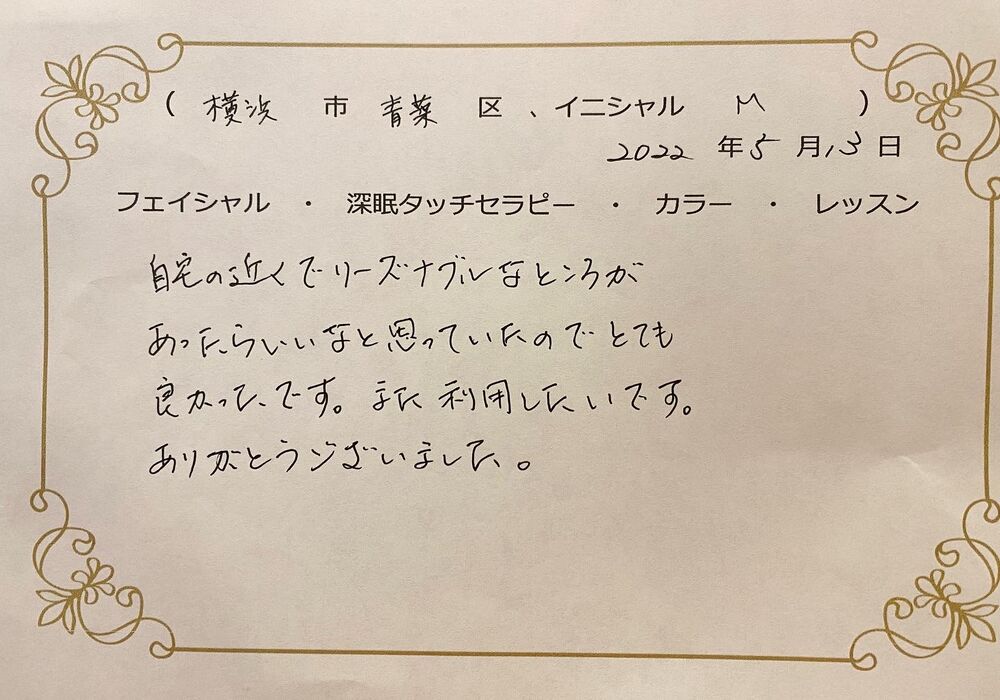 ( 横浜 市 青葉 区 、イニシャル M )
2022 年 5 月 13 日
フェイシャル ・ 深眠タッチセラピー ・ カラー ・ レッスン
自宅の近くでリーズナブルなところが
あったらいいなと思っていたのでとても
良かったです。また利用したいです。
ありがとうございました。